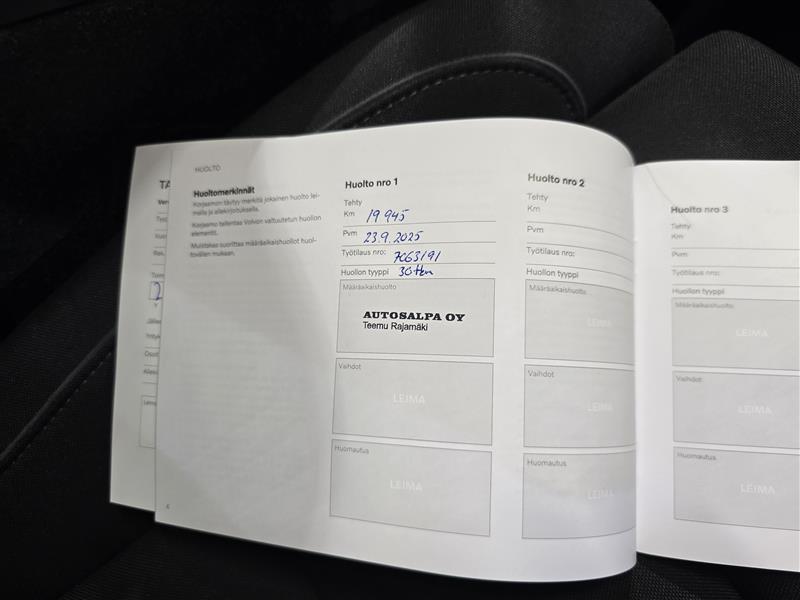 HUOLTO
Huoltomerkinnät
Korjaamon täytyy merkitä jokainen huolto lei-
malla ja allekirjoituksella.
Korjaamo tallentaa Volvon valtuutetun huollon
elementit.
Muistakaa suorittaa määräaikaishuollot huol-
tovälien mukaan.
Huolto nro 1
Tehty
Km 19 945
Pvm 23.9.2025
Työtilaus nro: 7063191
Huollon tyyppi 30tkm
Määräaikaishuolto
AUTOSALPA OY
Teemu Rajamäki
Vaihdot
LEIMA
Huomautus
LEIMA
Huolto nro 2
Tehty
Km
Pvm
Työtilaus nro:
Huollon tyyppi
Määräaikaishuolto
LEIMA
Vaihdot
LEIMA
Huomautus
LEIMA
Huolto nro 3
Tehty
Km
Pvm
Työtilaus nro:
Huollon tyyppi
Määräaikaishuolto
LEIMA
Vaihdot
LEIMA
Huomautus
LEIMA